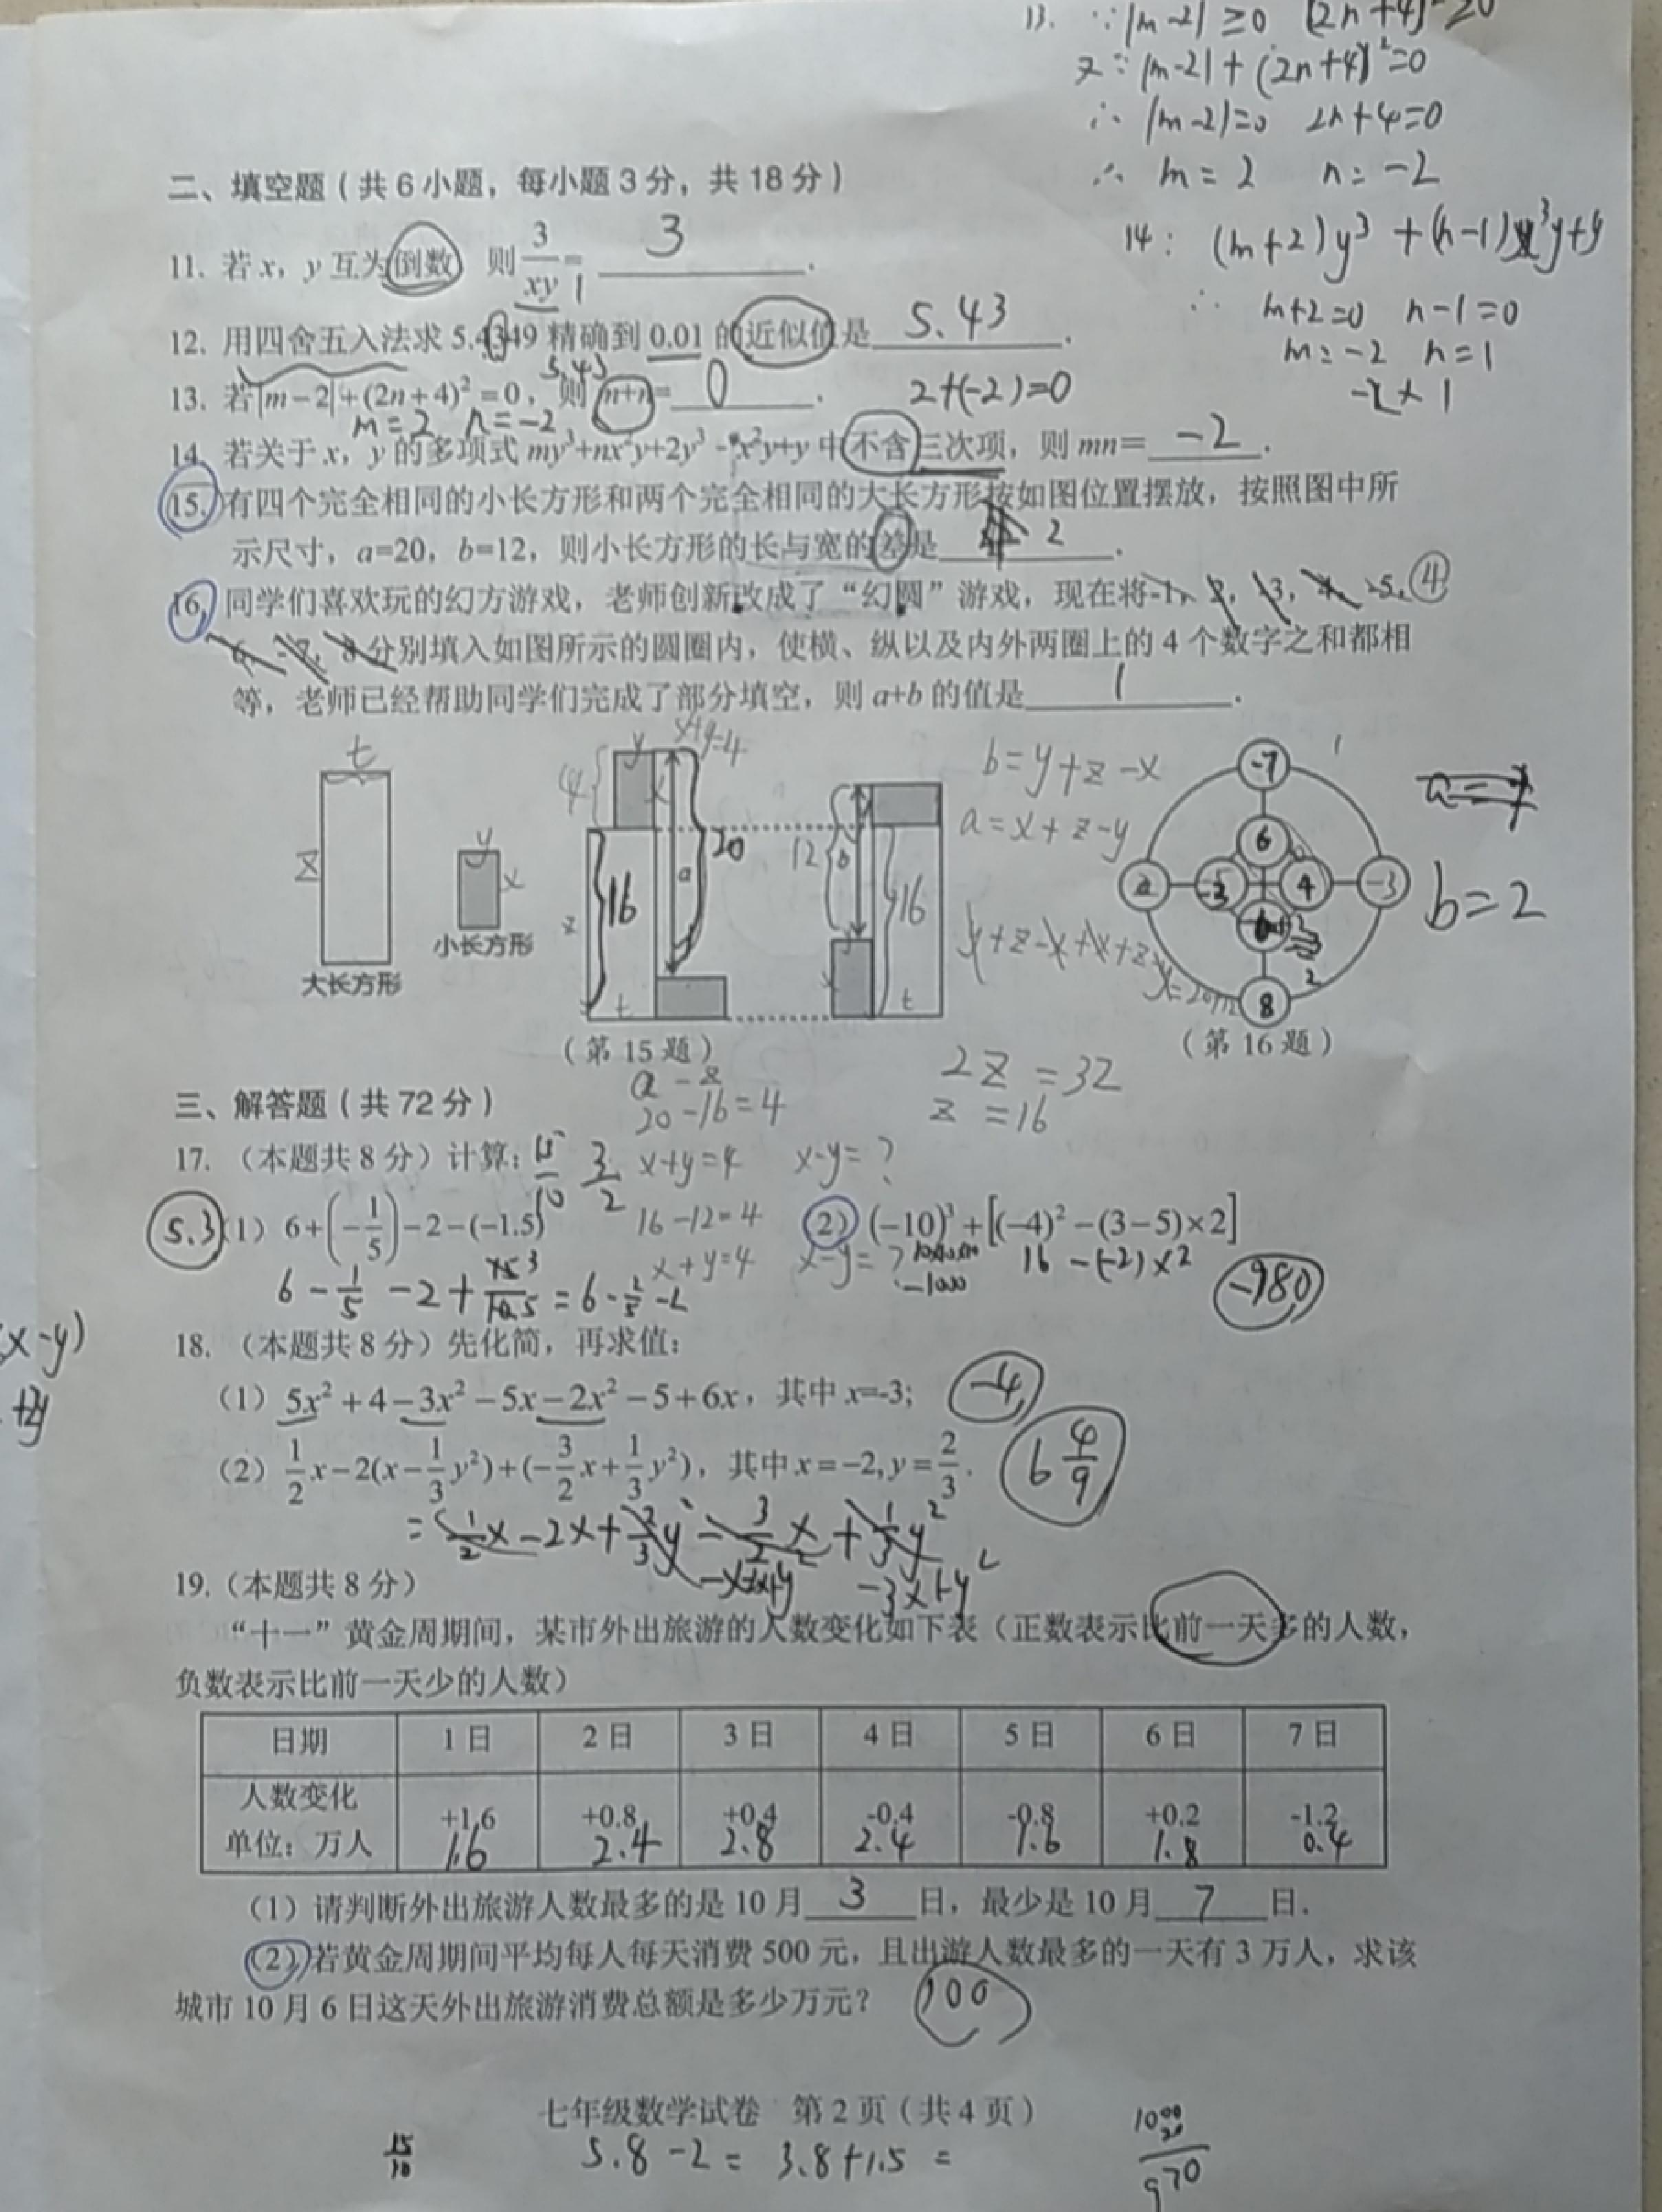 13. ∵|m-2|≥0 (2n+4)²≥0
又∵|m-2|+(2n+4)²=0
∴|m-2|=0 2n+4=0
∴ m=2 n=-2
二、填空题（共6小题，每小题3分，共18分）
11. 若x，y互为倒数，则3/xy= 3 .
1
14: (m+2)y³+(n-1)x²y+y
12. 用四舍五入法求5.4349精确到0.01的近似值是 5.43 .
∴ m+2=0 n-1=0
m=-2 n=1
5.43
13. 若|m-2|+(2n+4)²=0，则m+n= 0 .
2+(-2)=0
-2×1
m=2 n=-2
14. 若关于x，y的多项式my³+nx²y+2y³-x²y+y中不含三次项，则mn= -2 .
15. 有四个完全相同的小长方形和两个完全相同的大长方形按如图位置摆放，按照图中所
示尺寸，a=20，b=12，则小长方形的长与宽的差是 2 .
16. 同学们喜欢玩的幻方游戏，老师创新改成了“幻圆”游戏，现在将-1，2，-3，4，-5， ④
6，-7，8分别填入如图所示的圆圈内，使横、纵以及内外两圈上的4个数字之和都相
等，老师已经帮助同学们完成了部分填空，则a+b的值是 1 .
t
z
大长方形
y
x
小长方形
y
x
x+y=4
4
16
z
t
a
20
12
b
16
t
（第15题）
b=y+z-x
a=x+z-y
y+z-x+x+z-y=20+12
-7
6
a
4
-3
b
8
2
（第16题）
b=2
a-z
20-16=4
2z=32
z=16
三、解答题（共72分）
17. （本题共8分）计算：
15/10 3/2 x+y=4 x-y=?
5.3 (1) 6+(-1/5)-2-(-1.5)
16-12=4
(2) (-10)³+[(-4)²-(3-5)×2]
x+y=4 x-y=?
-1000 16-(-2)×2 -980
18. （本题共8分）先化简，再求值：
(1) 5x²+4-3x²-5x-2x²-5+6x，其中x=-3; -4
(2) 1/2x-2(x-1/3y²)+(-3/2x+1/3y²)，其中x=-2,y=2/3. 6 4/9
=1/2x-2x+2/3y²-3/2x+1/3y²
-3x+y²
19. （本题共8分）
“十一”黄金周期间，某市外出旅游的人数变化如下表（正数表示比前一天多的人数，
负数表示比前一天少的人数）
日期 1日 2日 3日 4日 5日 6日 7日
人数变化
单位：万人 +1.6 +0.8 +0.4 -0.4 -0.8 +0.2 -1.2
1.6 2.4 2.8 2.4 1.6 1.8 0.4
（1）请判断外出旅游人数最多的是10月 3 日，最少是10月 7 日.
（2）若黄金周期间平均每人每天消费500元，且出游人数最多的一天有3万人，求该
城市10月6日这天外出旅游消费总额是多少万元？ 100
七年级数学试卷 第2页（共4页）
15/10
5.8-2=3.8+1.5=
970